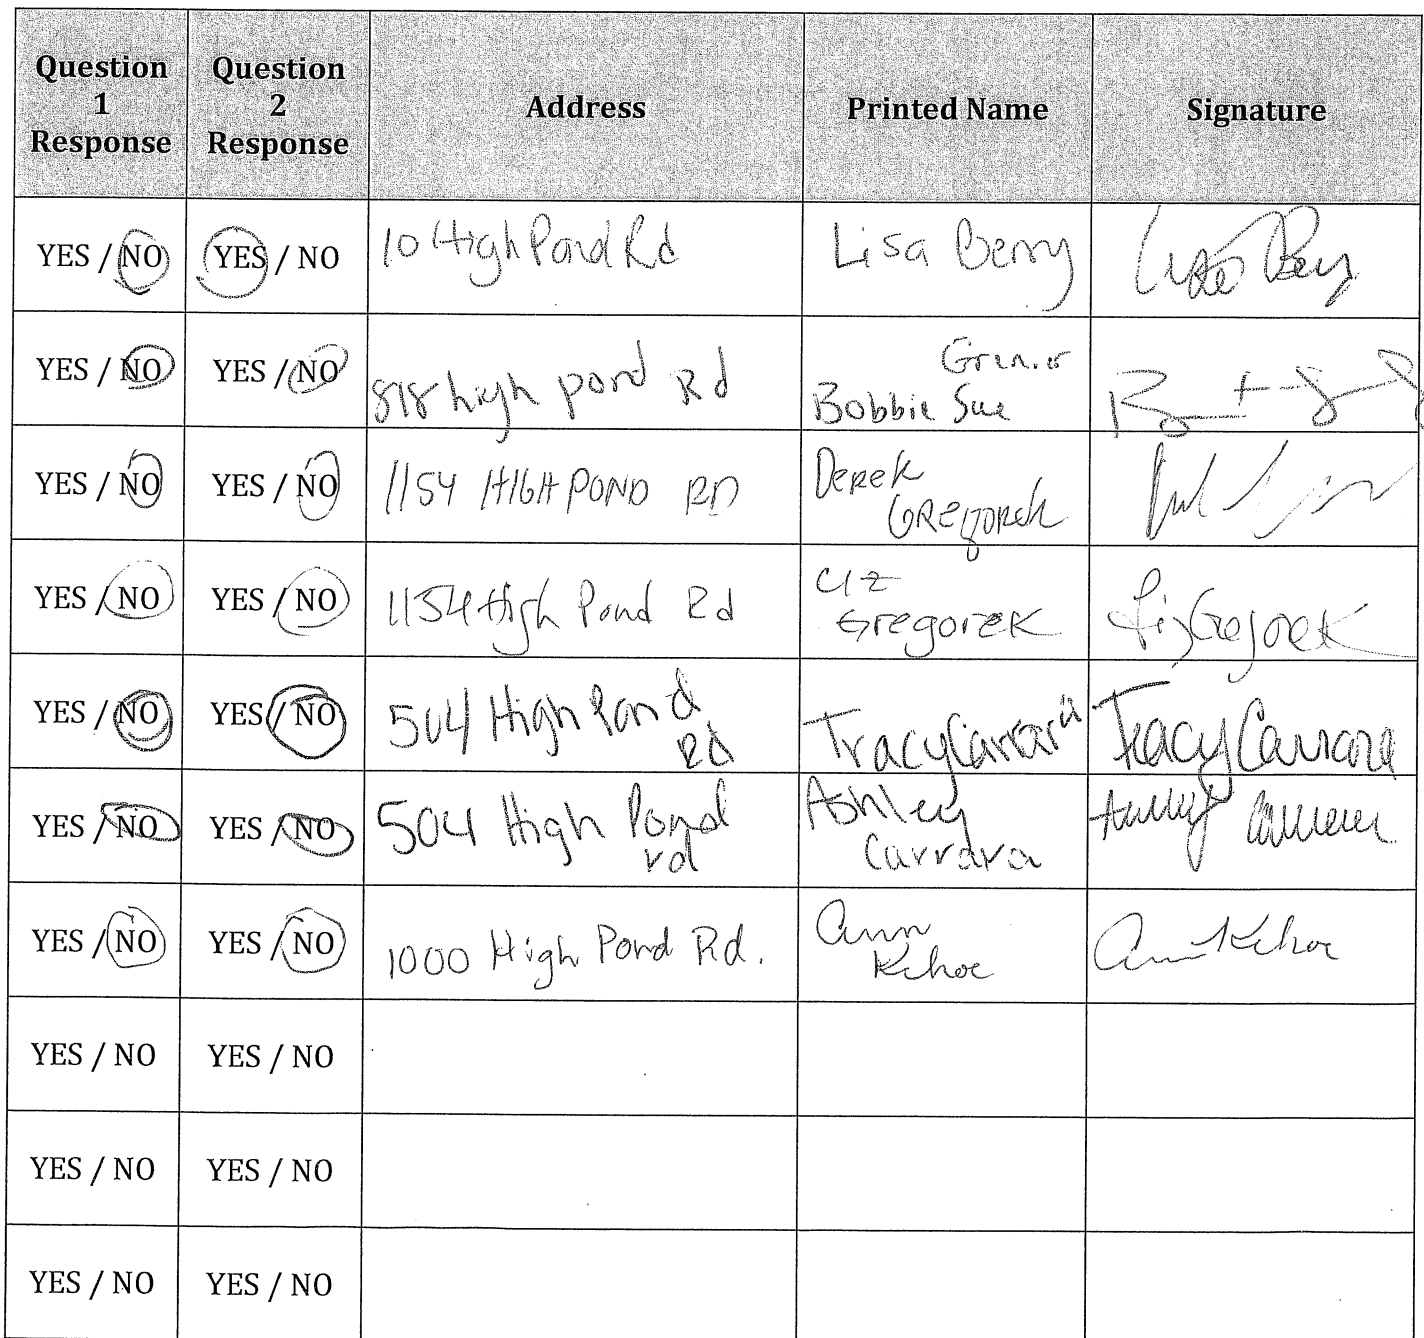 Question 1 Response | Question 2 Response | Address | Printed Name | Signature
YES / NO | YES / NO | 10 High Pond Rd | Lisa Berry | Lisa Berry
YES / NO | YES / NO | 818 high pond Rd | Grenier Bobbie Sue |
YES / NO | YES / NO | 1154 HIGH POND RD | Derek Gregorek |
YES / NO | YES / NO | 1154 High Pond Rd | Liz Gregorek | Liz Gregorek
YES / NO | YES / NO | 504 High Pond Rd | Tracy Carrara | Tracy Carrara
YES / NO | YES / NO | 504 High Pond rd | Ashley Carrara |
YES / NO | YES / NO | 1000 High Pond Rd. | Ann Kehoe | Ann Kehoe
YES / NO | YES / NO
YES / NO | YES / NO
YES / NO | YES / NO